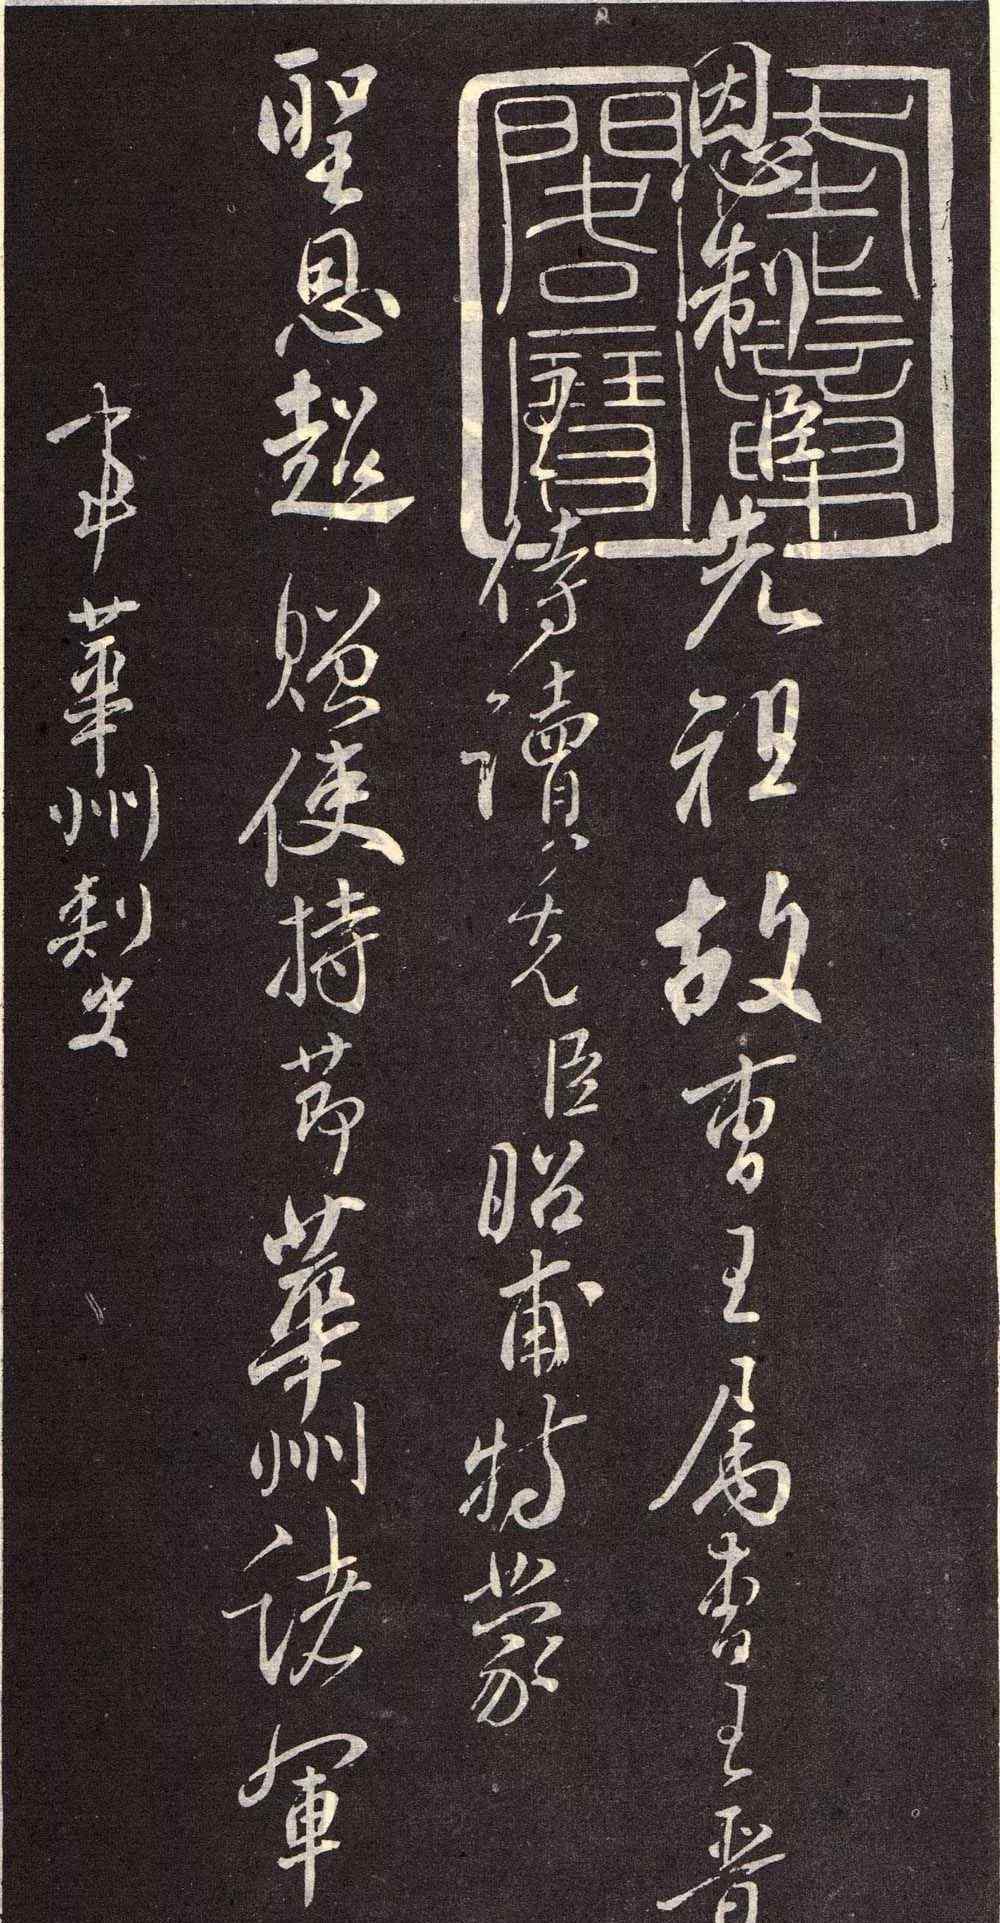 恩制臣先祖故曹王属晋
王侍讀先臣昭甫特蒙
聖恩超贈使持節華州諸軍
事華州刺史